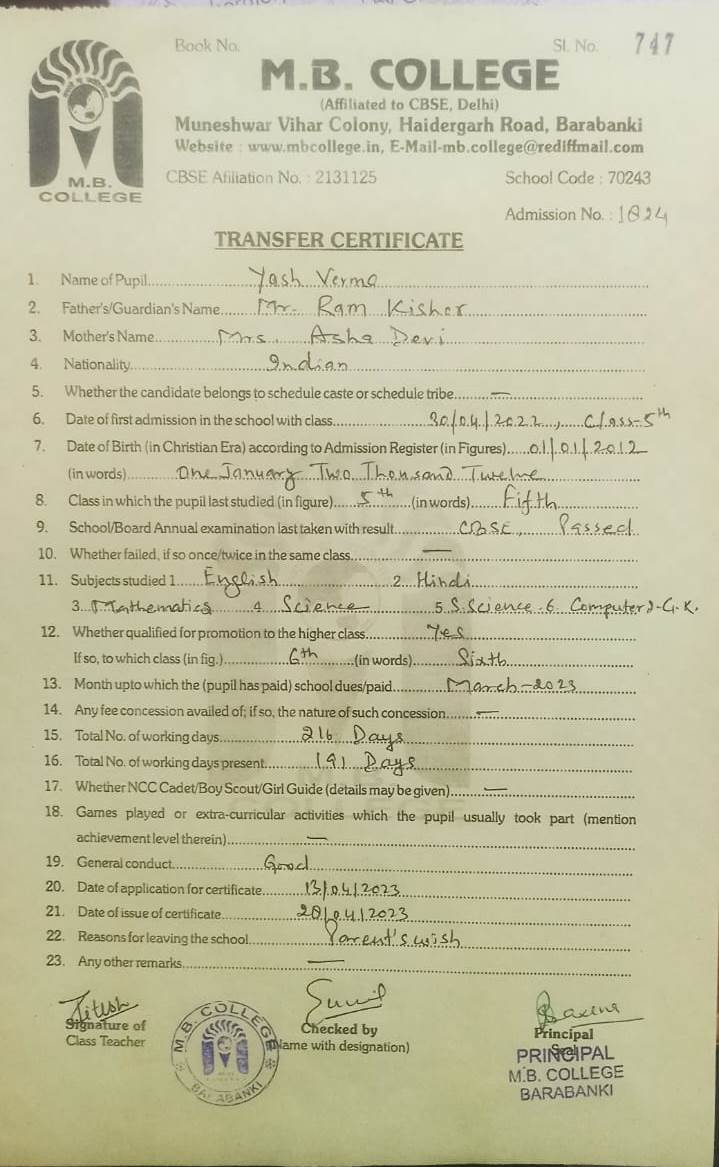 Book No.
Sl. No. 747
M.B. COLLEGE
(Affiliated to CBSE, Delhi)
Muneshwar Vihar Colony, Haidergarh Road, Barabanki
Website : www.mbcollege.in, E-Mail-mb.college@rediffmail.com
M.B.
COLLEGE
CBSE Afiliation No. : 2131125 School Code : 70243
Admission No. : 1824
TRANSFER CERTIFICATE
1. Name of Pupil Yash Verma
2. Father's/Guardian's Name Mr. Ram Kishor
3. Mother's Name Mrs. Asha Devi
4. Nationality Indian
5. Whether the candidate belongs to schedule caste or schedule tribe —
6. Date of first admission in the school with class 30/04/2022, Class-5th
7. Date of Birth (in Christian Era) according to Admission Register (in Figures) 01/01/2012
(in words) One January Two Thousand Twelve
8. Class in which the pupil last studied (in figure) 5th (in words) Fifth
9. School/Board Annual examination last taken with result CBSE, Passed
10. Whether failed, if so once/twice in the same class —
11. Subjects studied 1 English 2. Hindi
3. Mathematics 4. Science 5. S.Science 6. Computer 7-G.K.
12. Whether qualified for promotion to the higher class Yes
If so, to which class (in fig.) 6th (in words) Sixth
13. Month upto which the (pupil has paid) school dues/paid March-2023
14. Any fee concession availed of; if so, the nature of such concession —
15. Total No. of working days 216 Days
16. Total No. of working days present 191 Days
17. Whether NCC Cadet/Boy Scout/Girl Guide (details may be given) —
18. Games played or extra-curricular activities which the pupil usually took part (mention
achievement level therein) —
19. General conduct Good
20. Date of application for certificate 13/04/2023
21. Date of issue of certificate 20/04/2023
22. Reasons for leaving the school Parent's wish
23. Any other remarks —
Signature of
Class Teacher
M.B. COLLEGE
BARABANKI
Sunil
Checked by
(Name with designation)
Principal
PRINCIPAL
M.B. COLLEGE
BARABANKI